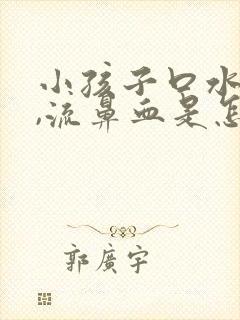 小孩子口水
,流鼻血是怎
郭廣宇